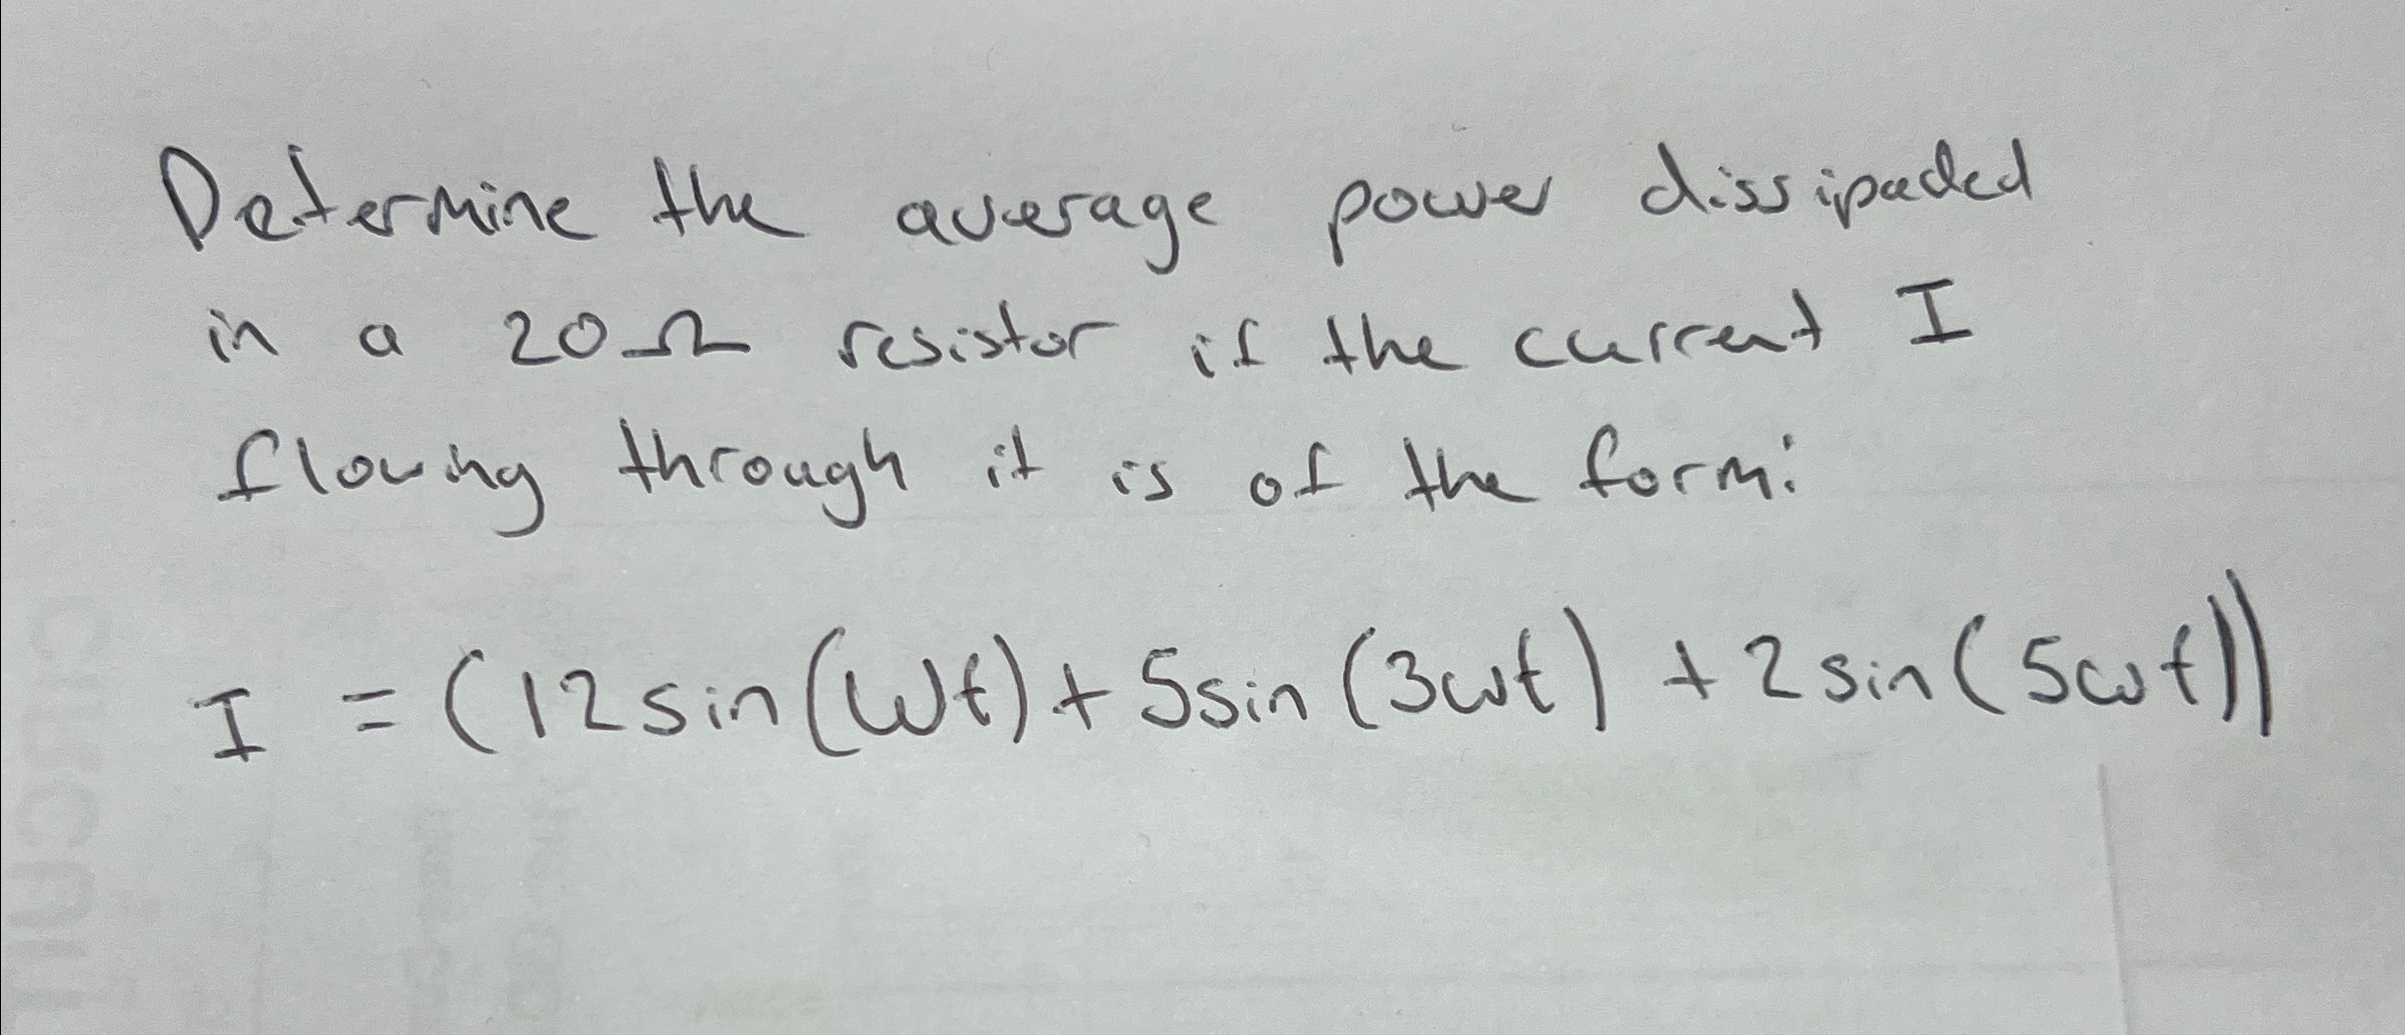 Determine the average power dissipaded
in a 20Ω resistor if the current I
flowing through it is of the form:
I = (12sin(ωt) + 5sin(3ωt) + 2sin(5ωt))